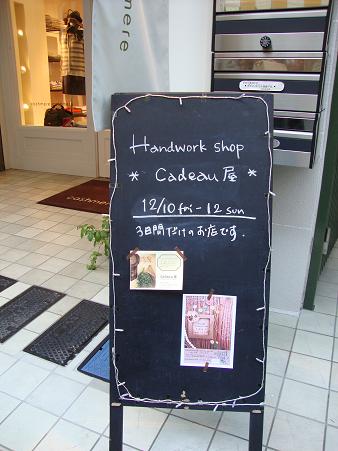 Handwork shop
* Cadeau 屋 *
12/10 fri - 12 sun
3日間だけのお店です.
cashmere
cashmere